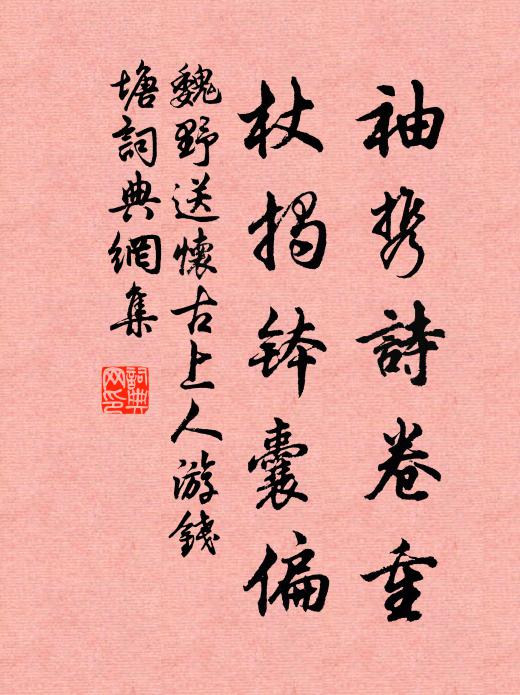 袖携詩卷重
杖揭鉢囊偏
魏野送懷古上人游錢
塘詞典網集
詞典
网印